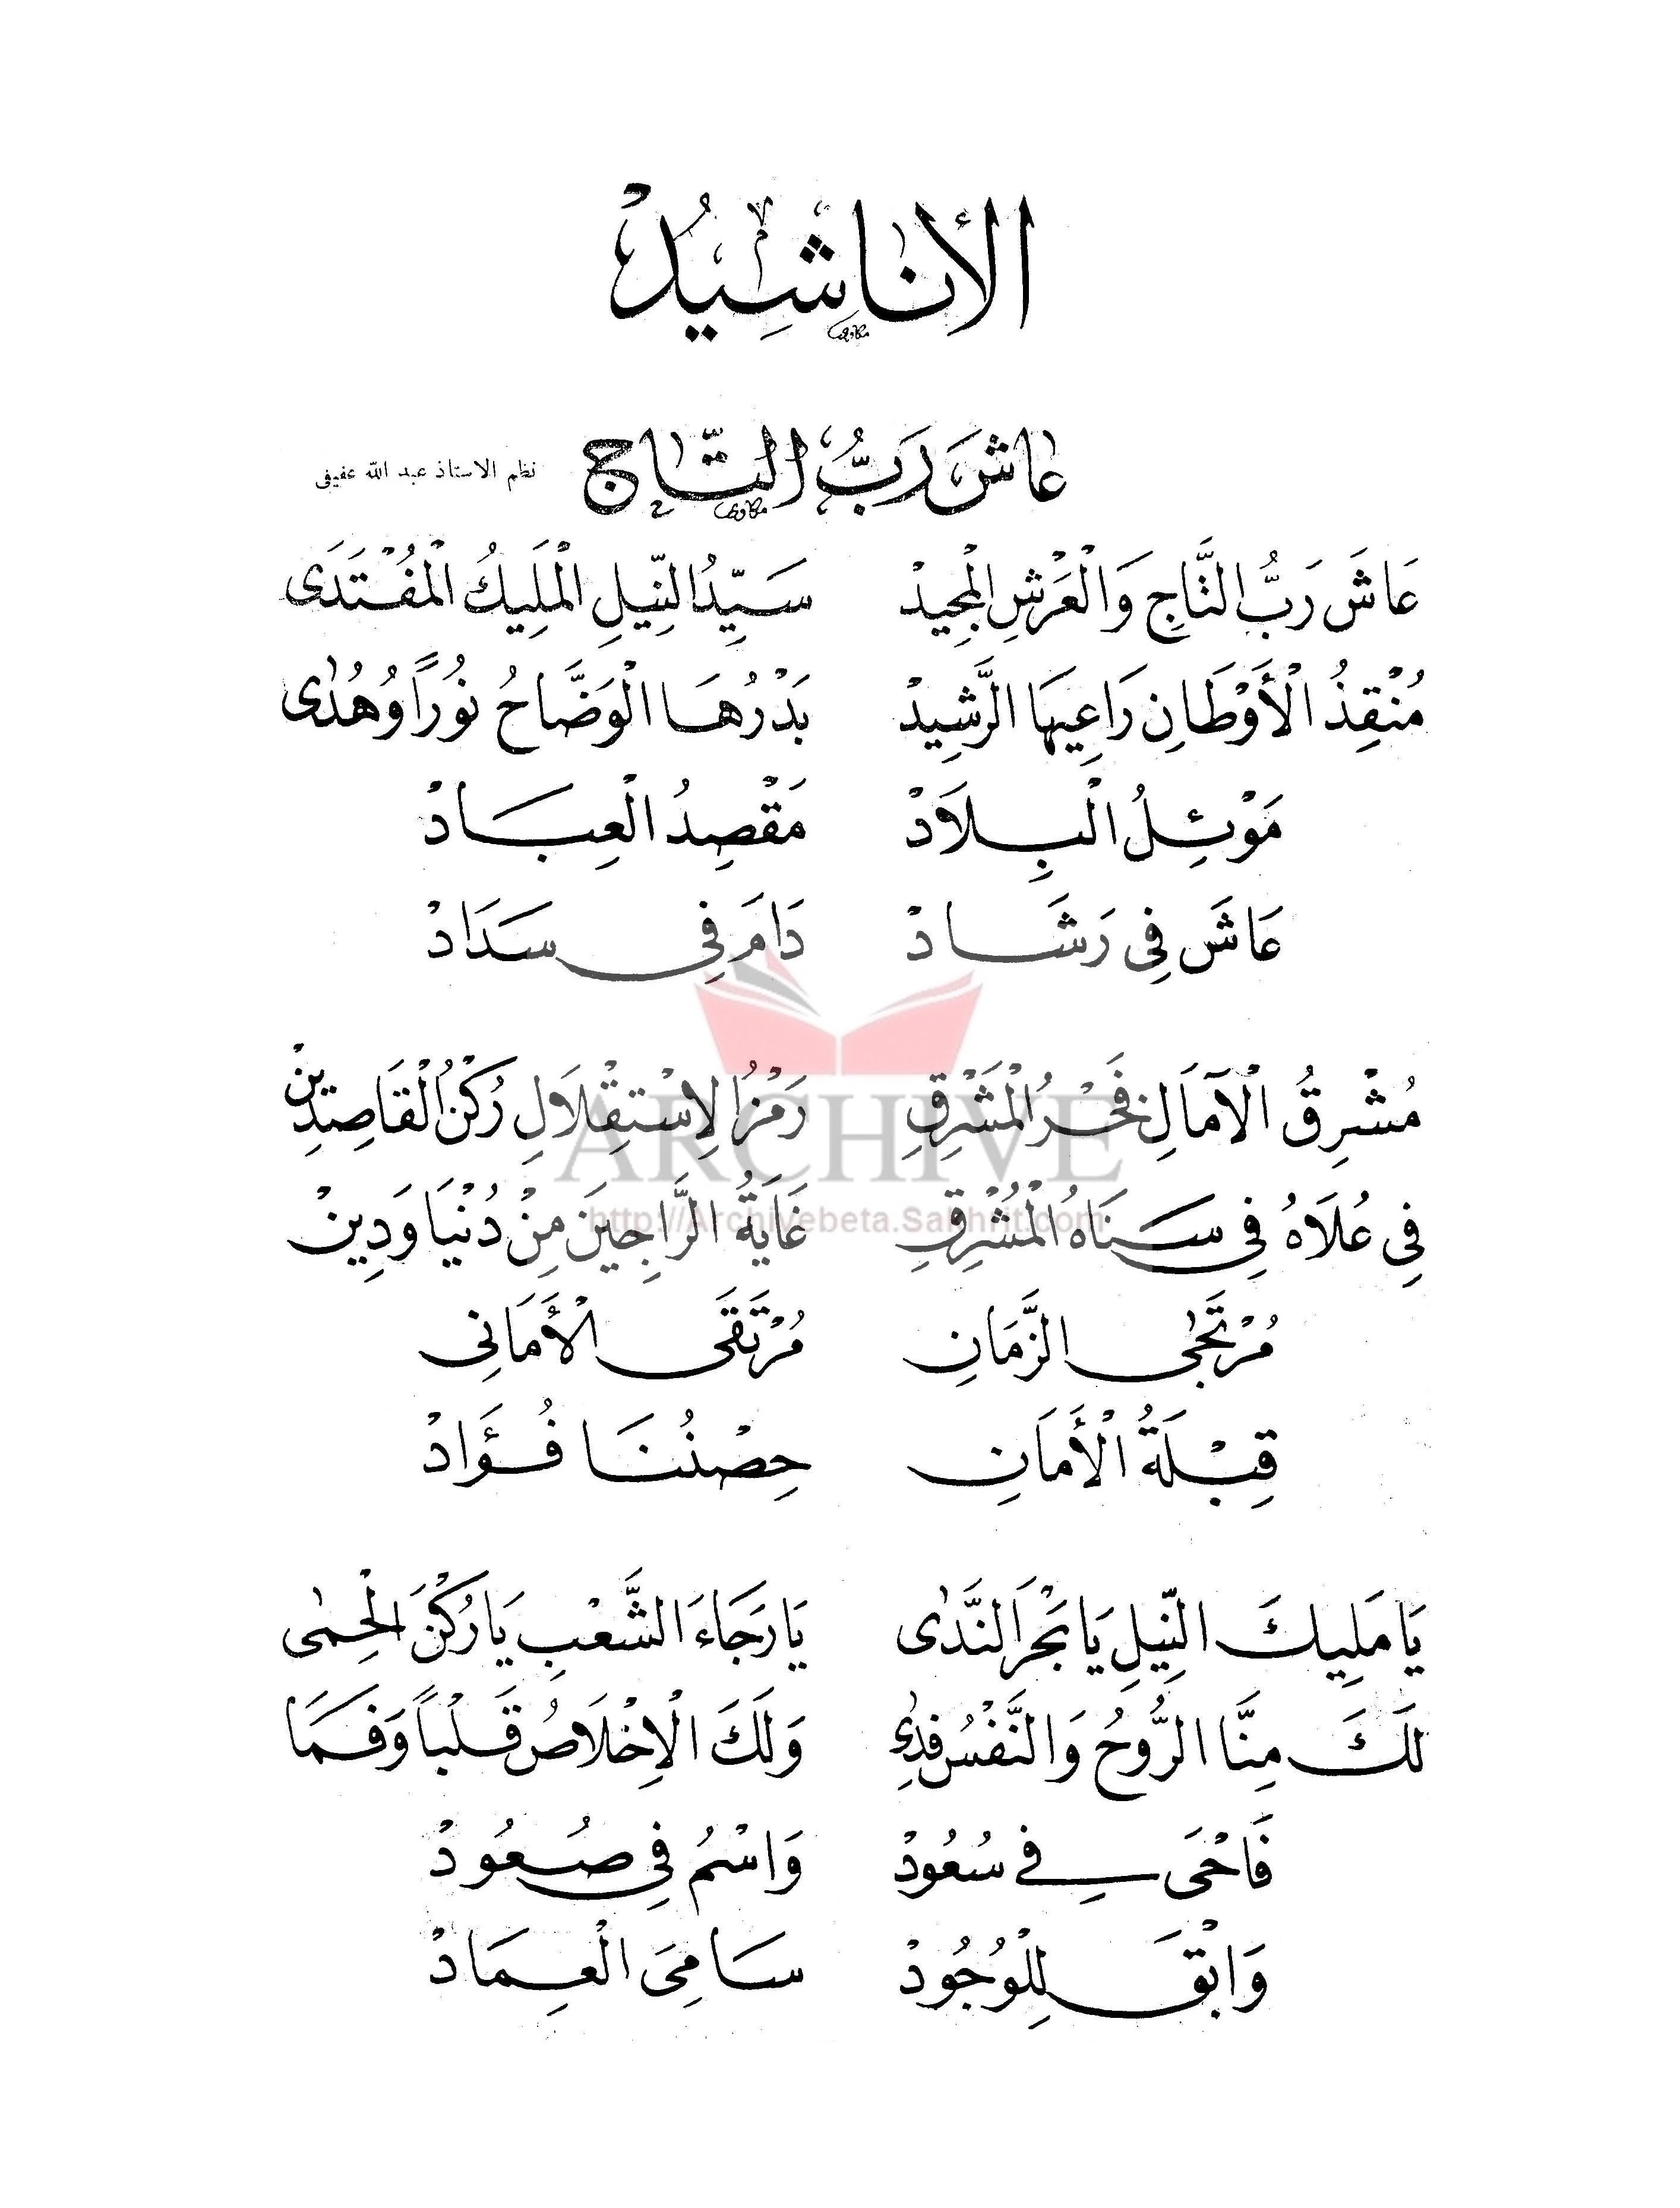 الأَناشِيدُ
مكاوى
عَاشَ رَبُّ التَّاج
مكاوى
نظم الاستاذ عبد الله عفيفى
عَاشَ رَبُّ التَّاجِ وَالْعَرْشِ الْمَجِيدْ سَيِّدُ النِّيلِ الْمَلِيكُ الْمُفْتَدَى
مُنْقِذُ الْأَوْطَانِ رَاعِيهَا الرَّشِيدْ بَدْرُهَا الْوَضَّاحُ نُورًا وَهُدَى
مَوْئِلُ الْبِلَادْ مَقْصِدُ الْعِبَادْ
عَاشَ فِى رَشَادْ دَامَ فِى سَدَادْ
مُشْرِقُ الْآمَالِ فَخْرُ الْمَشْرِقِ رَمْزُ الِاسْتِقْلَالِ رُكْنُ الْقَاصِدِينْ
فِى عُلَاهُ فِى سَنَاهُ الْمُشْرِقِ غَايَةُ الرَّاجِينَ مِنْ دُنْيَا وَدِينْ
مُرْتَجَى الزَّمَانِ مُرْتَقَى الْأَمَانِى
قِبْلَةُ الْأَمَانِ حِصْنُنَا فُؤَادْ
يَا مَلِيكَ النِّيلِ يَا بَحْرَ النَّدَى يَا رَجَاءَ الشَّعْبِ يَا رُكْنَ الْحِمَى
لَكَ مِنَّا الرُّوحُ وَالنَّفْسُ فِدَى وَلَكَ الْإِخْلَاصُ قَلْبًا وَفَمَا
فَاحْىَ فِى سُعُودْ وَاسْمُ فِى صُعُودْ
وَابْقَ لِلْوُجُودْ سَامِىَ الْعِمَادْ
ARCHIVE
http://Archivebeta.Sakhrit.com